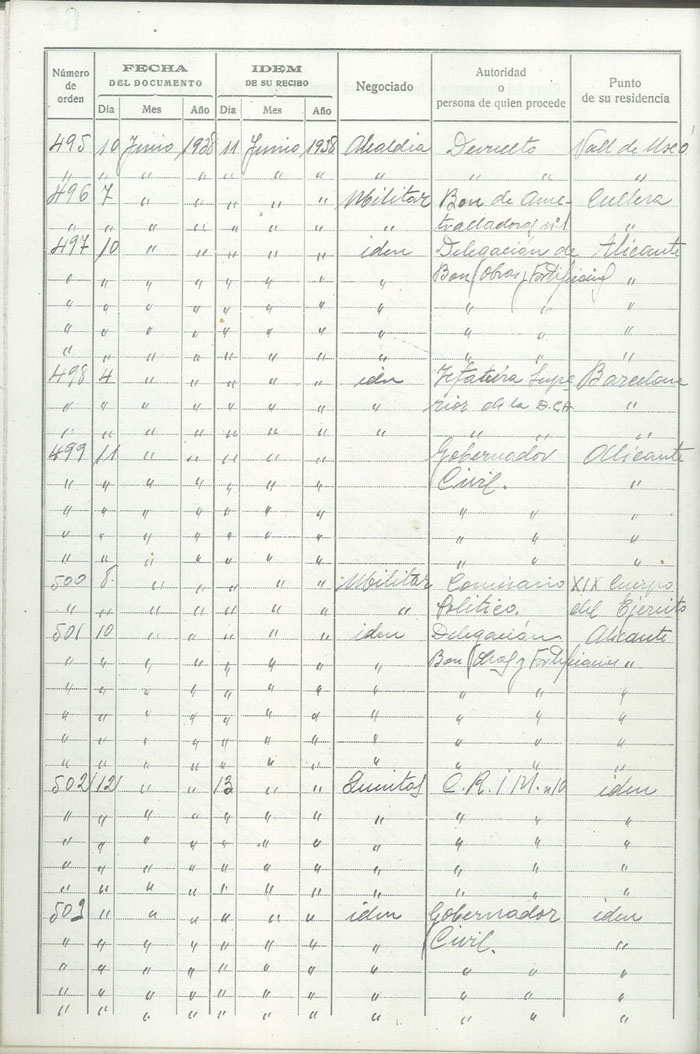 Número de orden | FECHA DEL DOCUMENTO | IDEM DE SU RECIBO | Negociado | Autoridad o persona de quien procede | Punto de su residencia
Dia | Mes | Año | Dia | Mes | Año
495 10 Junio 1938 11 Junio 1938 Alcaldia Vall de Uxó
" " " " " " " " " "
496 7 " " " " " Militar Bon de Ame- Cullera
" " " " " " " " tralladoras nº 1 "
497 10 " " " " " iden Delegación de Alicante
" " " " " " " " Bon (Obras y Fortificacio) "
" " " " " " " " " " "
" " " " " " " " " " "
" " " " " " " " " " "
498 4 " " " " " iden Jefatura Supe Barcelona
" " " " " " " " rior de la D.C.A. "
" " " " " " " " " " "
499 11 " " " " " Gobernador Alicante
" " " " " " " Civil. "
" " " " " " " " " "
" " " " " " " " " "
" " " " " " " " " "
500 8 " " " " " Militar Comisario XIX Cuerpo
" " " " " " " " Politico. del Ejercito
501 10 " " " " " iden Delegación Alicante
" " " " " " " " Bon (Obras y Fortificacions "
" " " " " " " " " " "
" " " " " " " " " " "
" " " " " " " " " " "
" " " " " " " " " " "
502 12 " " 13 " " Quintas C.R.I.M. n 10 iden
" " " " " " " " " " "
" " " " " " " " " " "
" " " " " " " " " " "
" " " " " " " " " " "
503 " " " " " " iden Gobernador iden
" " " " " " " " Civil. "
" " " " " " " " " " "
" " " " " " " " " " "
" " " " " " " " " " "